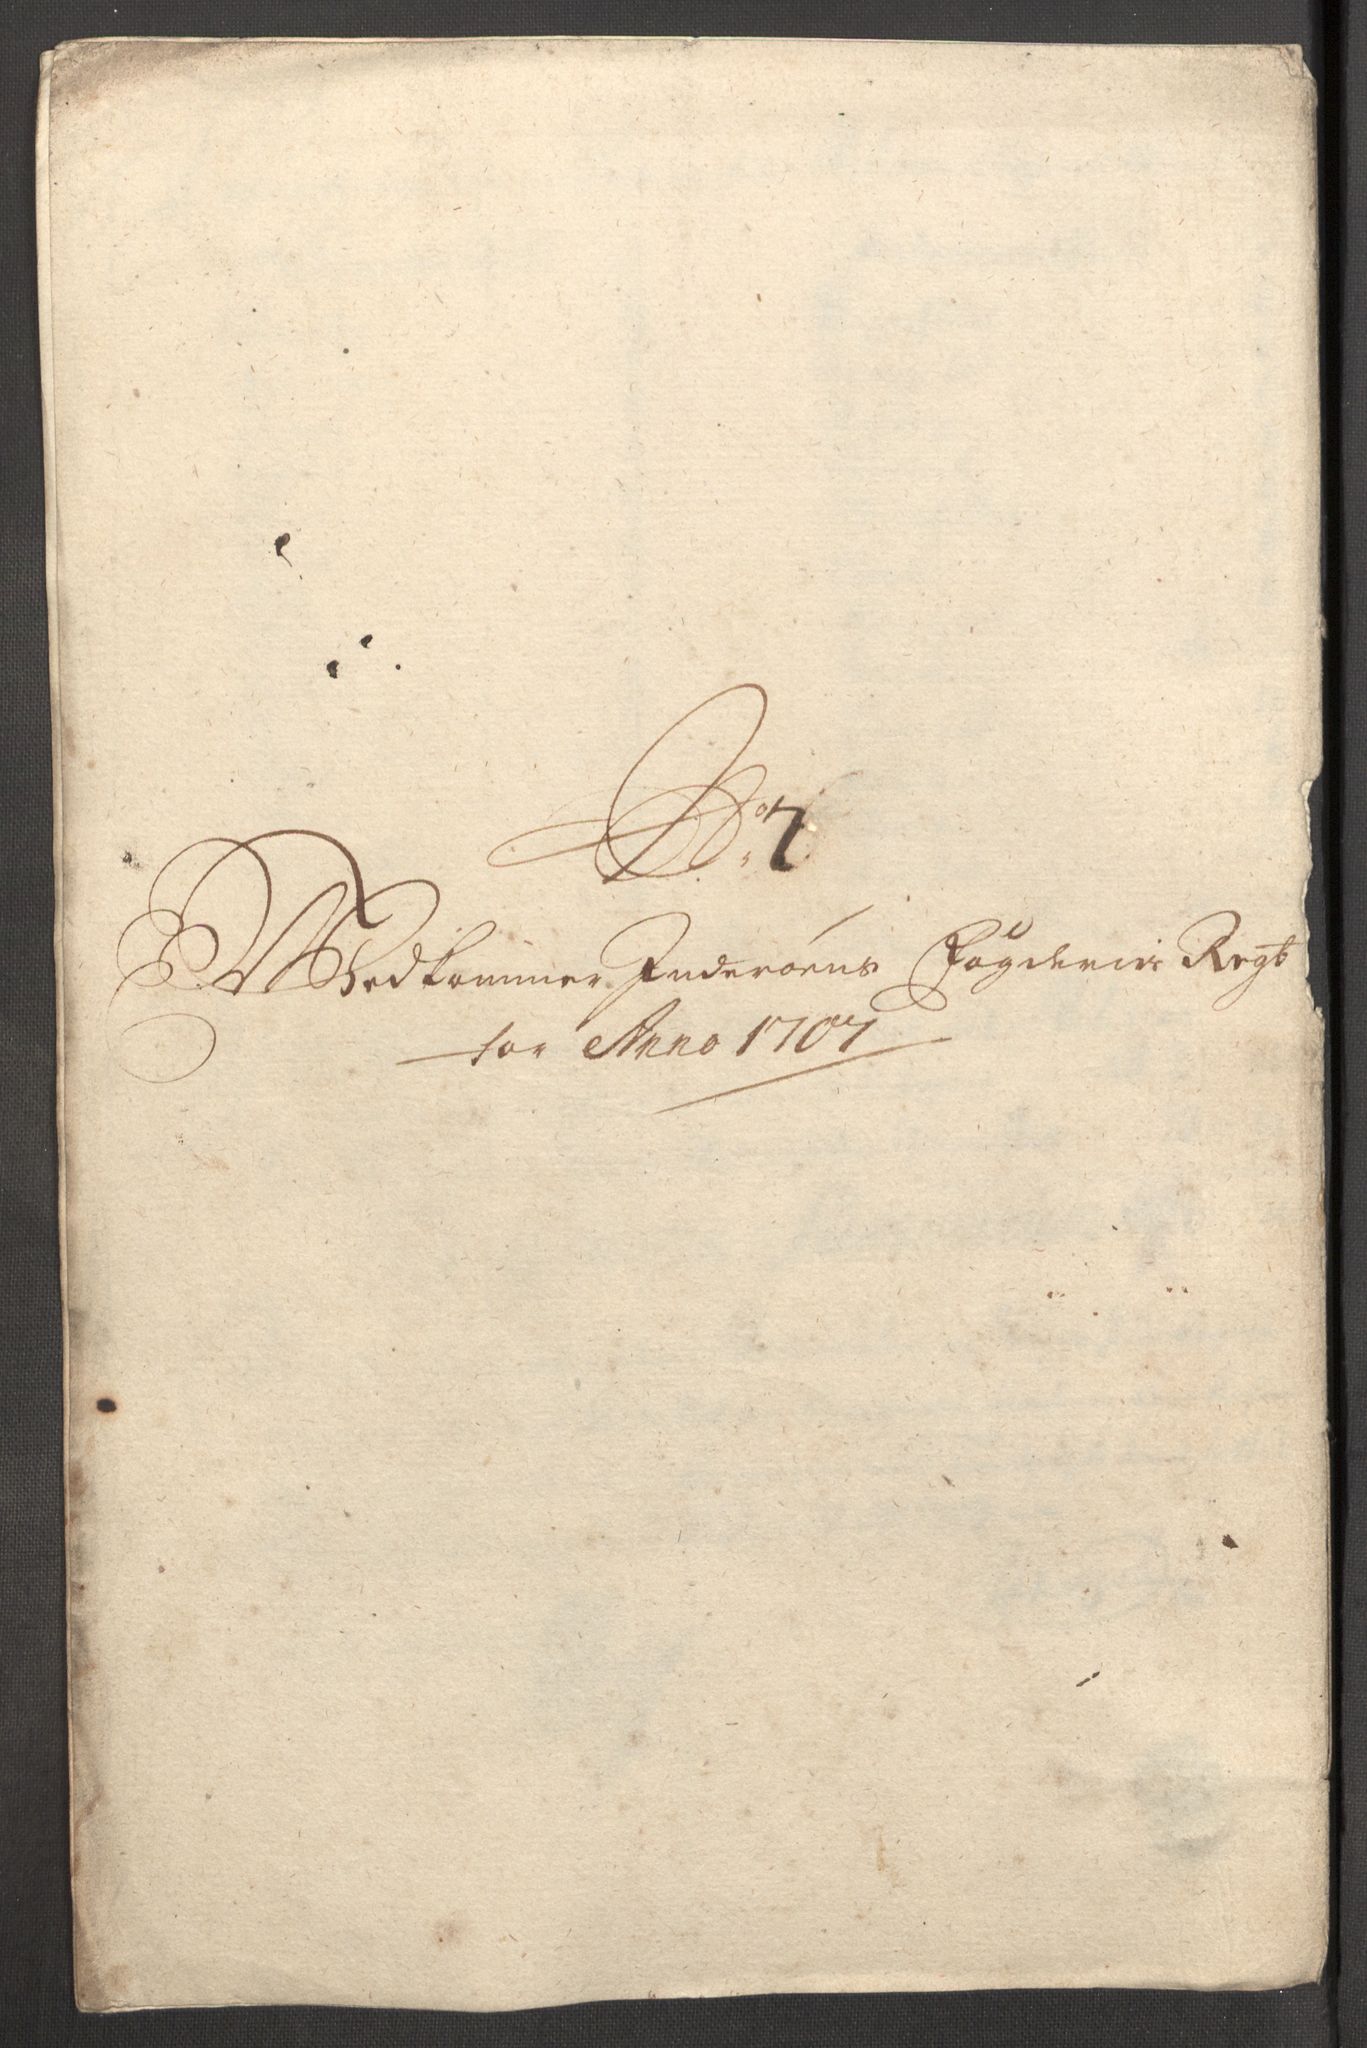 No. 7
Vedkommer Inderøens Fögderies Regb
for Anno 1707